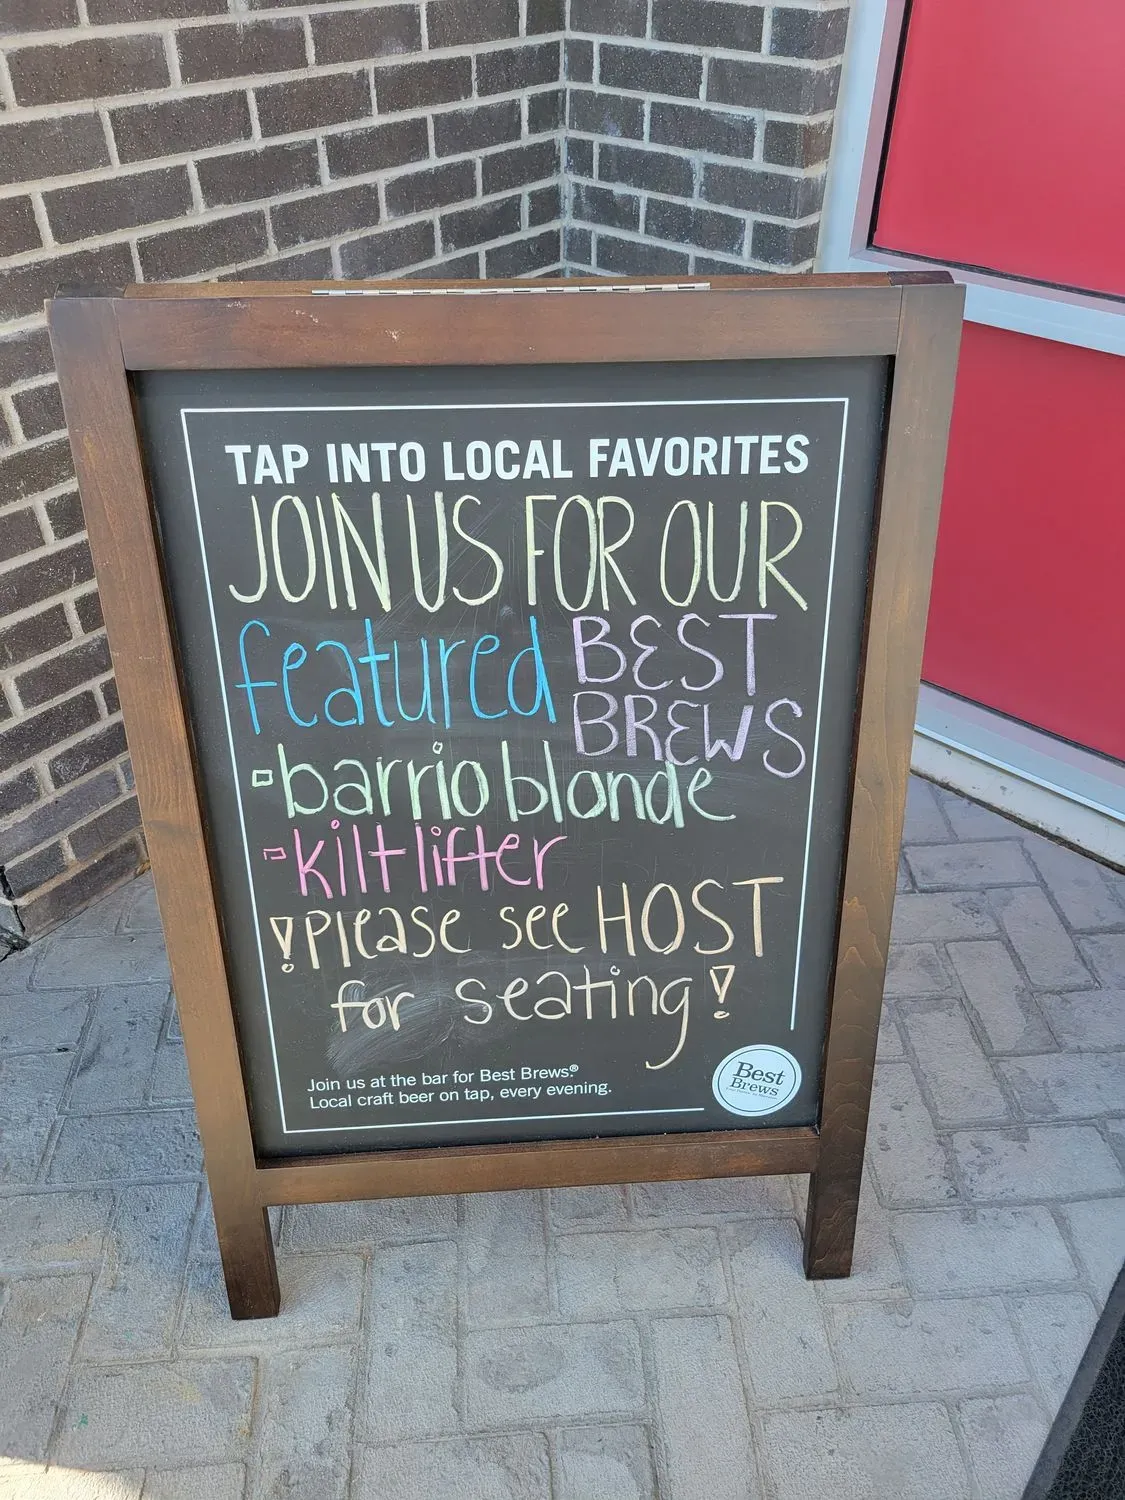 TAP INTO LOCAL FAVORITES
JOIN US FOR OUR
featured BEST
BREWS
barrio blonde
kilt lifter
!Please see HOST
for seating!
Join us at the bar for Best Brews.®
Local craft beer on tap, every evening.
Best
Brews